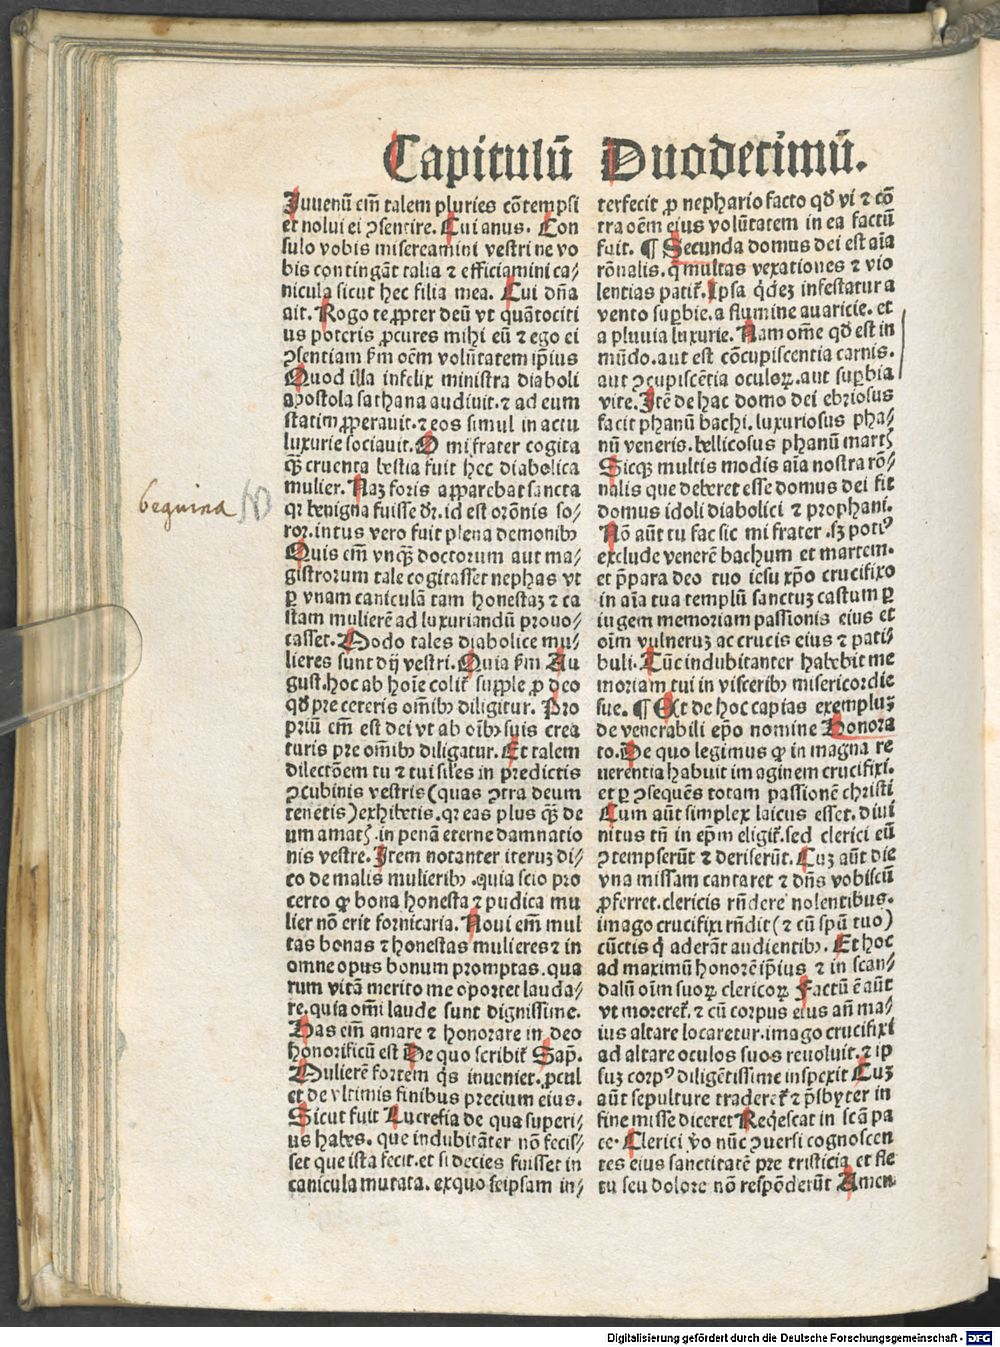 Capitulū Duodecimū.
Iuvenū em̄ talem pluries cōtempsi
et nolui ei ꝯsentire. Cui anus. Con
sulo vobis misereamini vestri ne vo
bis contingāt talia ⁊ efficiamini ca/
nicula sicut hec filia mea. Cui dn̄a
ait. Rogo te ꝓpter deū vt quātociti
us poteris ꝓcures mihi eū ⁊ ego ei
ꝯsentiam ẜm oēm volūtatem ip̄ius
Quod illa infelix ministra diaboli
apostola sathana audiuit. ⁊ ad eum
statim ꝓperauit. ⁊ eos simul in actu
luxurie sociauit. O mi frater cogita
qꝫ̄ cruenta bestia fuit hec diabolica
mulier. Naꝫ foris apparebat sancta
qꝛ benigna fuisse dꝛ̄. id est orōnis so/
ror. intus vero fuit plena demonibꝫ
Quis em̄ vnqꝫ̄ doctorum aut ma/
gistrorum tale cogitasset nephas vt
ꝑ vnam caniculā tam honestaꝫ ⁊ ca
stam mulierē ad luxuriandū prouo/
casset. Modo tales diabolice mu/
lieres sunt dij vestri. Quia ẜm Au
gust. hoc ab hoīe colit̃ supple ꝓ deo
qd̄ pre ceteris om̄ibꝫ diligitur. Pro
priū em̄ est dei vt ab oībꝫ suis crea
turis pre om̄ibꝫ diligatur. Et talem
dilectōem tu ⁊ tui sil̄es in predictis
ꝯcubinis vestris (quas ꝯtra deum
tenetis) exhibetis. qꝛ eas plus qꝫ̄ de
um amatꝭ. in penā eterne damnatio
nis vestre. Item notanter iteruꝫ di/
co de malis mulieribꝫ. quia scio pro
certo ꝙ bona honesta ⁊ pudica mu
lier nō erit fornicaria. Noui em̄ mul
tas bonas ⁊ honestas mulieres ⁊ in
omne opus bonum promptas. qua
rum vitā merito me oportet lauda/
re. quia om̄i laude sunt dignissime.
Has em̄ amare ⁊ honorare in deo
honorificū est De quo scribit̃ Sap̄.
Mulierē fortem q̇s inueniet. ꝓcul
et de vltimis finibus precium eius.
Sicut fuit Lucresia de qua superi/
us habes. que indubitāter nō fecis/
set que ista fecit. et si decies fuisset in
canicula mutata. exquo seipsam in/
terfecit ꝓ nephario facto qd̄ vi ⁊ cō
tra oēm eius volūtatem in ea factū
fuit. ¶ Secunda domus dei est aīa
rōnalis. q̄ multas vexationes ⁊ vio
lentias patit̃. Ipsa q̇deꝫ infestatur a
vento suꝑbie. a flumine auaricie. et
a pluuia luxurie. Nam om̄e qd̄ est in
mūdo. aut est cōcupiscentia carnis.
aut ꝯcupiscētia oculoꝝ. aut suꝑbia
vite. Itē de hac domo dei ebriosus
facit phanū bachi. luxuriosus pha/
nū veneris. bellicosus phanū martꝭ
Sicqꝫ multis modis aīa nostra rō/
nalis que deberet esse domus dei fit
domus idoli diabolici ⁊ prophani.
Nō aūt tu fac sic mi frater. sꝫ potiꝰ
exclude venerē bachum et martem.
et p̄para deo tuo iesu xp̄o crucifixo
in aīa tua templū sanctuꝫ castum ꝑ
iugem memoriam passionis eius et
oīm vulneruꝫ ac crucis eius ⁊ pati/
buli. Tūc indubitanter habebit me
moriam tui in visceribꝫ misericordie
sue. ¶ Et de hoc capias exempluꝫ
de venerabili ep̄o nomine Honora
to. De quo legimus ꝙ in magna re
uerentia habuit imaginem crucifixi.
et ꝑ ꝯsequēs totam passionē christi
Cum aūt simplex laicus esset. diui
nitus tn̄ in ep̄m eligit̃. sed clerici eū
ꝯtempserūt ⁊ deriserūt. Cuꝫ aūt die
vna missam cantaret ⁊ dn̄s vobiscū
ꝓferret. clericis rn̄dere nolentibus.
imago crucifixi rn̄dit (⁊ cū sp̄u tuo)
cūctis q̇ aderāt audientibꝫ. Et hoc
ad maximū honorē ip̄ius ⁊ in scan/
dalū oīm suoꝝ clericoꝝ Factū ē aūt
vt moreret̃. ⁊ cū corpus eius an̄ ma/
ius altare locaretur. imago crucifixi
ad altare oculos suos reuoluit. ⁊ ip
suꝫ corpꝰ diligētissime inspexit Cuꝫ
aūt sepulture traderet̃ ⁊ p̄sbyter in
fine misse diceret Reqescat in scā pa
ce. Clerici v̄o nūc ꝯuersi cognoscen
tes eius sanctitatē pre tristicia et fle
tu seu dolore nō respōderūt Amen
beguina
Digitalisierung gefördert durch die Deutsche Forschungsgemeinschaft - DFG